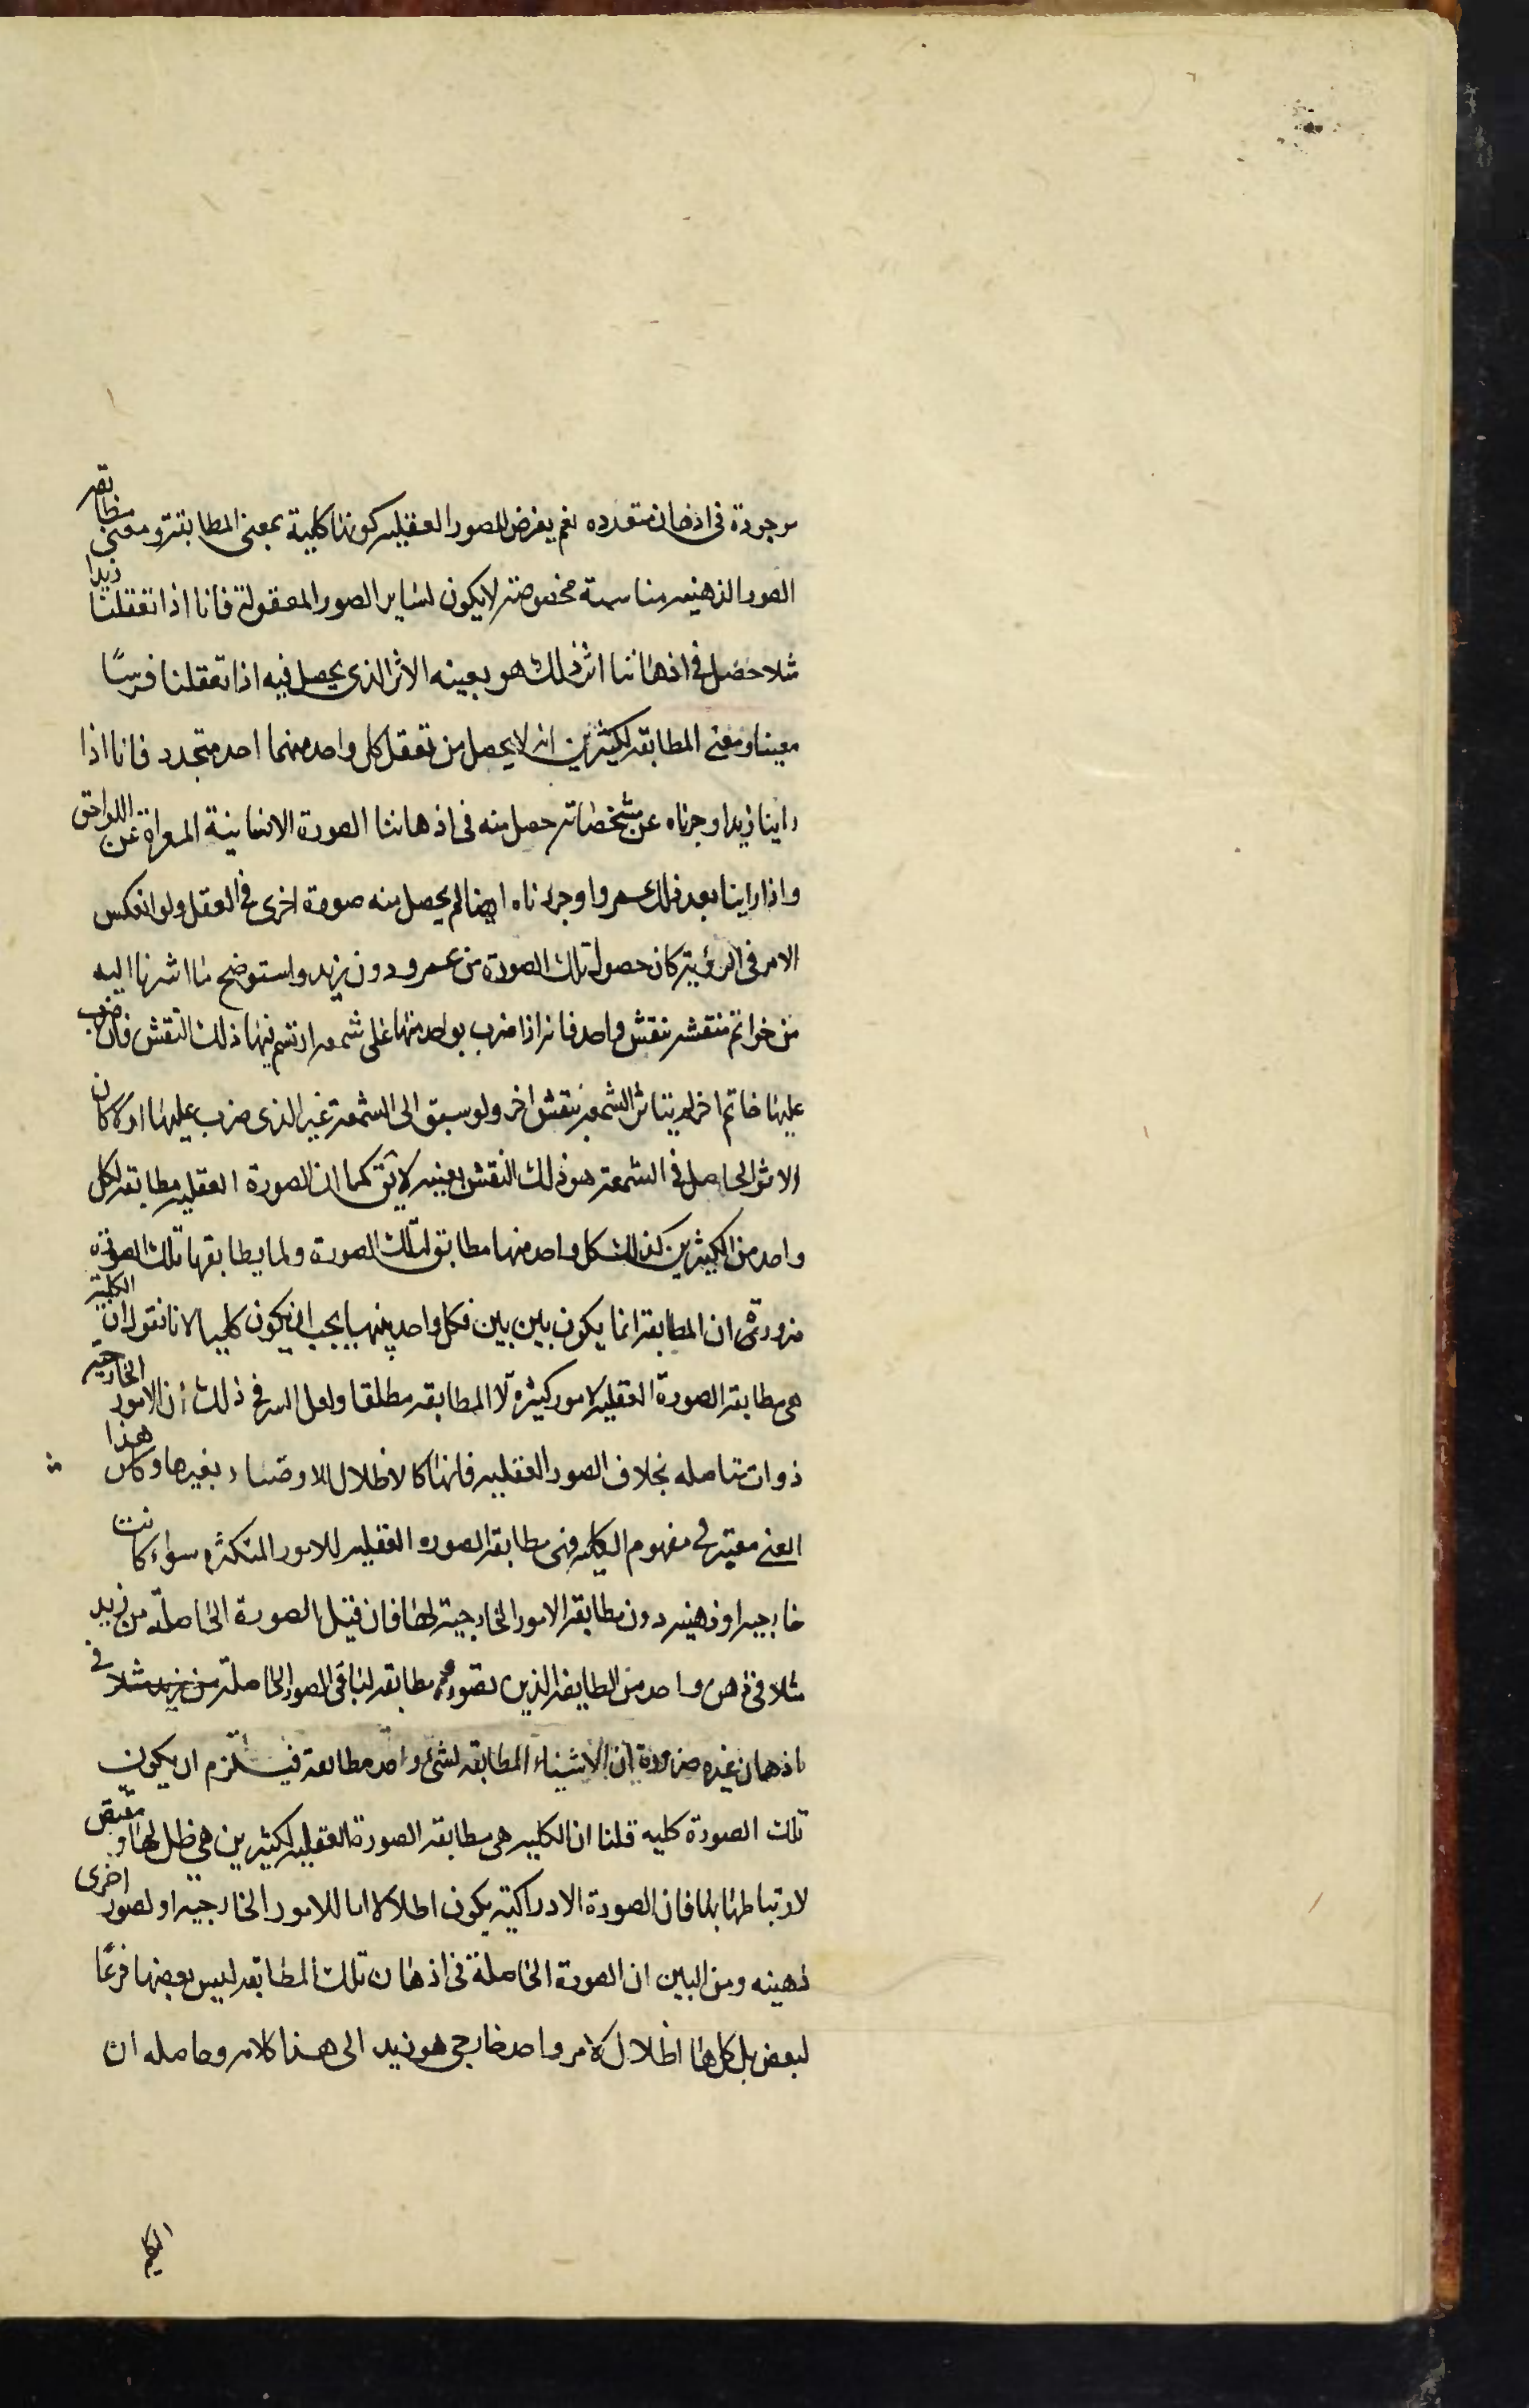 موجودة فى اذهان متعدده نعم يعرض للصور العقليه كونها كلية بمعنى المطابقة ومعنى مطابقه
الصور الذهنيه مناسبة مخصوصة لا يكون لساير الصور المعقولة فانا اذا تعقلنا زيدا
مثلا حصل فى اذهاننا اثر ذلك هو بعينه الاثر الذى يحصل فيه اذا تعقلنا فرسًا
معينا ومعنى المطابقه لكثيرين انه لا يحصل من تعقل كل واحد منهما احد متجدد فانا اذا
راينا زيدا وجردناه عن مشخصاته حصل منه فى اذهاننا الصورة الانسانية المعراة عن اللواحق
واذا راينا بعد ذلك عمروا وجردناه ايضا لم يحصل منه صورة اخرى فى العقل ولو انعكس
الامر فى الرؤية كان حصول تلك الصورة من عمرو دون زيد واستوضح ما اشرنا اليه
من خواتم منتقشه بنقش واحد فانه اذا ضرب بواحد منها على شمعه ارتسم فيها ذلك النقش فان ضرب
عليها خاتم اخر لم يتاثر الشمعة بنقش اخر ولو سبق الى الشمعة غير الذى ضرب عليها اولا كان
الاثر الحاصل فى الشمعة هو ذلك النقش بعينه لا يق كما ان الصورة العقليه مطابقه لكل
واحد من الكثيرين كذلك كل واحد منها مطابق لتلك الصورة ولما يطابقها تلك الصورة
ضرورة ان المطابقة انما يكون بين بين فكل واحد منهما يجب ان يكون كليا لانا نقول ان الكلية
هى مطابقة الصورة العقليه لامور كثيرة لا المطابقه مطلقا ولعل السر فى ذلك ان الامور الخارجيه
ذوات متاصله بخلاف الصور العقليه فانها كالاظلال للاوضاع بغيرها وكان هذا
المعنى معتبر فى مفهوم الكليه فهى مطابقة الصوره العقليه للامور المتكثره سواء كانت
خارجيه او ذهنيه دون مطابقة الامور الخارجية لها فان قيل الصورة الحاصلة من زيد
مثلا فى ذهن واحد من الطايفه الذين تصوروه مطابقه لباقى الصور الحاصلة من زيد مثلا فى
اذهان غيره ضرورة ان الاشياء المطابقه لشئ واحد مطابقة فيستلزم ان يكون
تلك الصورة كليه قلنا ان الكليه هى مطابقه الصورة العقليه لكثيرين هى ظل لها ومقتض
لارتباطها بها فان الصورة الادراكية يكون اظلالا اما للامور الخارجيه او لصور اخرى
ذهينه ومن البين ان الصورة الحاصلة فى اذهان تلك المطابقه ليس بعضها فرعًا
لبعض بل كلها اظلال لامر واحد خارجى هو زيد الى هذا كلامه وحاصله ان